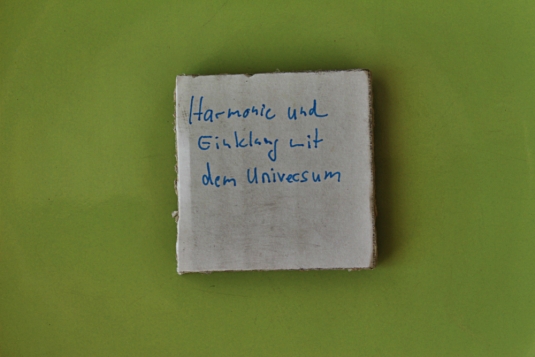 Harmonie und
Einklang mit
dem Universum